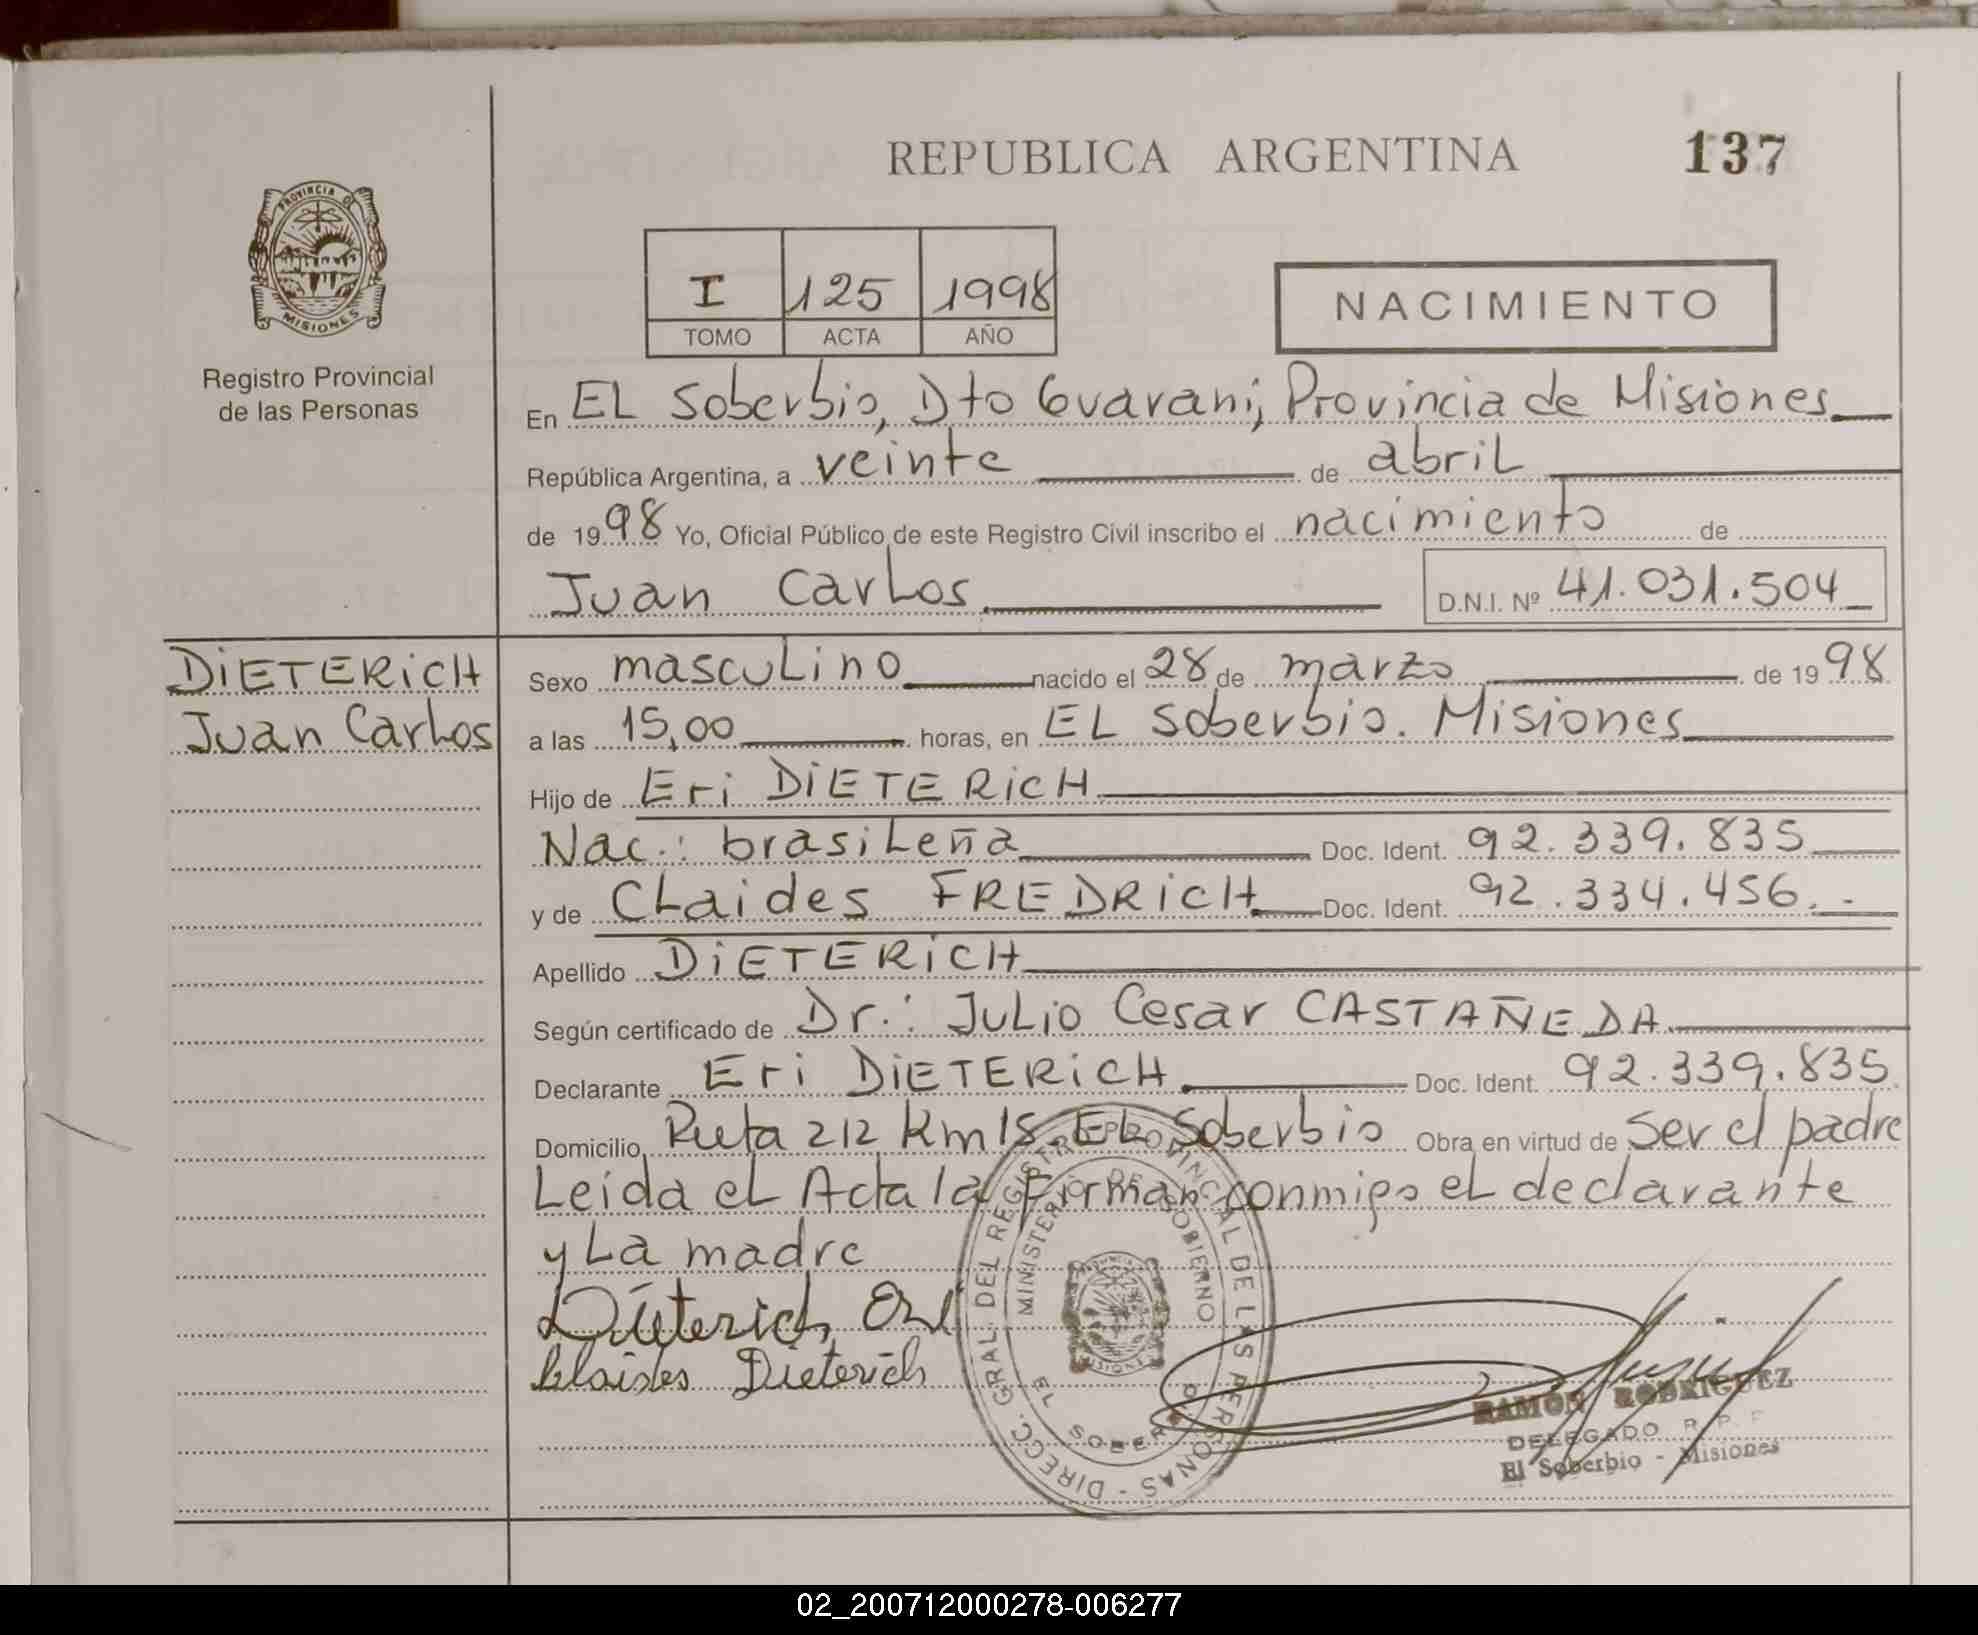 REPUBLICA ARGENTINA
137
PROVINCIA DE
MISIONES
Registro Provincial
de las Personas
I 125 1998
TOMO ACTA AÑO
NACIMIENTO
En EL Soberbio, Dto Guarani, Provincia de Misiones
República Argentina, a veinte de abril
de 1998 Yo, Oficial Público de este Registro Civil inscribo el nacimiento de
Juan Carlos D.N.I. Nº 41.031.504
DiETERicH
Juan Carlos
Sexo masculino nacido el 28 de marzo de 1998
a las 15,00 horas, en EL Soberbio. Misiones
Hijo de Eri DiETERicH
Nac.: brasileña Doc. Ident. 92.339.835
y de CLaides FREDRicH Doc. Ident. 92.334.456.-
Apellido DiETERicH
Según certificado de Dr.: Julio Cesar CASTAÑEDA
Declarante Eri DiETERicH Doc. Ident. 92.339.835
Domicilio Ruta 212 Km 15. EL Soberbio Obra en virtud de ser el padre
Leída el Acta la firman conmigo el declarante
y La madre
Dieterich Eri
Claides Dieterich
DIRECC. GRAL. DEL REGISTRO PROVINCIAL DE LAS PERSONAS -
MINISTERIO DE GOBIERNO
MISIONES
EL SOBERBIO
RAMON RODRIGUEZ
DELEGADO R. P. P.
El Soberbio - Misiones
02_200712000278-006277